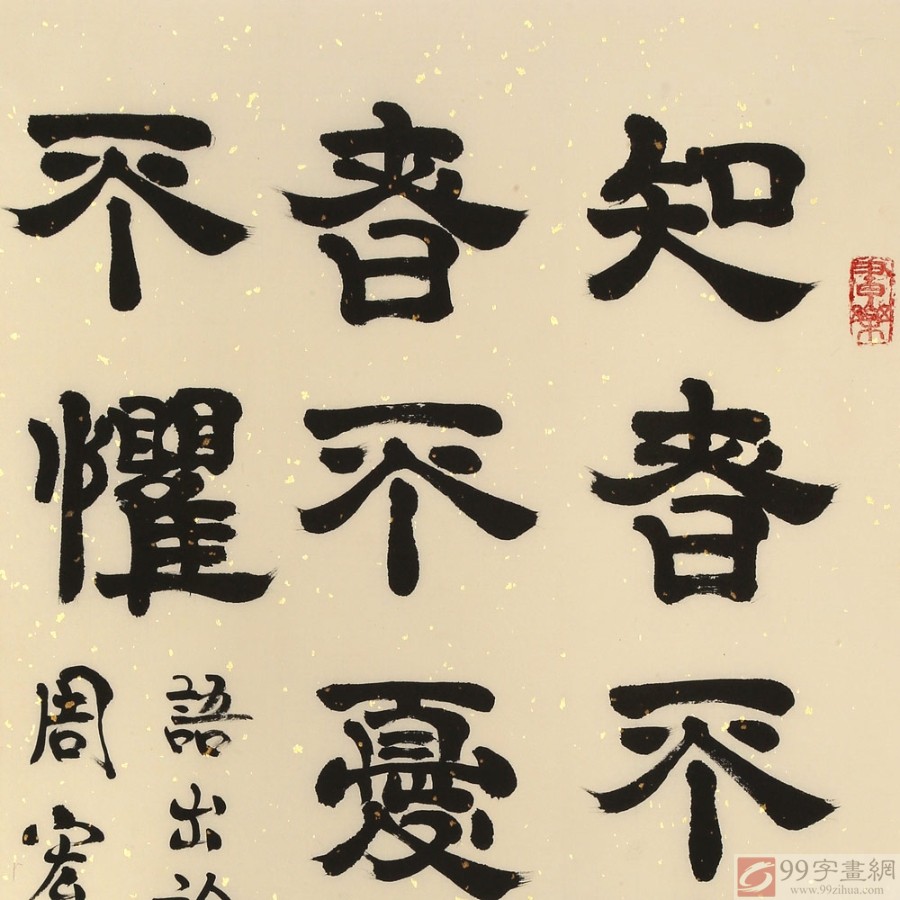 知者不
者不憂
不懼
語出
周宏
99字畫網
www.99zihua.com